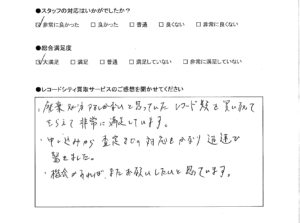 ●スタッフの対応はいかがでしたか？
☑非常に良かった □良かった □普通 □良くない □非常に良くない
●総合満足度
☑大満足 □満足 □普通 □満足していない □非常に満足していない
●レコードシティ買取サービスのご感想を聞かせてください
・廃棄処分するしかないと思っていたレコード類を買い取って
もらえて非常に満足しています。
・申し込みから査定までの対応もかなり迅速で
驚きました。
・機会があれば、またお願いしたいと思っています。